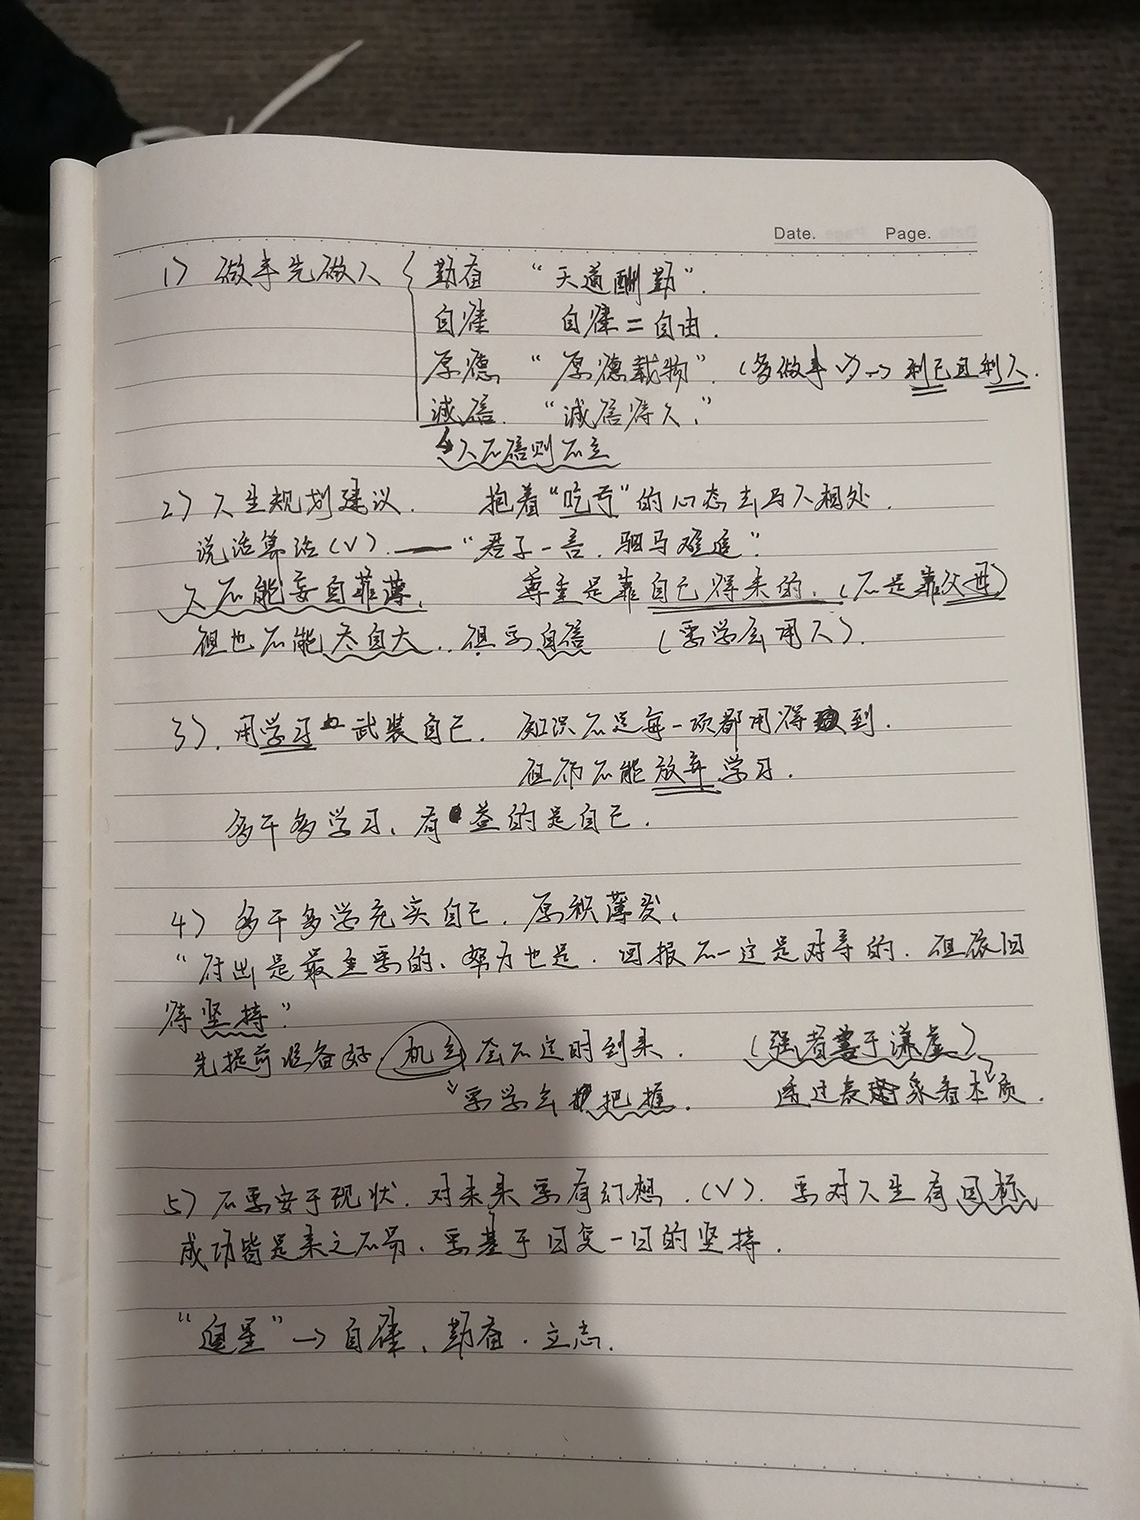 Date. Page.
1) 做事先做人 { 勤奋 “天道酬勤”.
自律 自律=自由.
厚德 “厚德载物”. (多做事√)→利己且利人.
诚信. “诚信待人.”
↳人不信则不立
2) 人生规划建议. 抱着“吃亏”的心态去与人相处.
说话算话(√). —“君子一言. 驷马难追”.
人不能妄自菲薄. 尊重是靠自己得来的. (不是靠父母)
但也不能夭自大.. 但要自信 (要学会用人).
3). 用学习 武装自己. 知识不是每一项都用得到.
但而不能放弃学习.
多干多学习、有益的是自己.
4) 多干多学充实自己. 厚积薄发、
“付出是最重要的、努力也是. 回报不一定是对等的. 但依旧
得坚持”.
先提前准备好 机会 会不定时到来. (强者善于谦虚)
↓要学会把握. 透过表象看本质.
5) 不要安于现状. 对未来要有幻想. (√). 要对人生有目标
成功皆是来之不易、要基于日复一日的坚持.
“追星”→自律、勤奋. 立志.